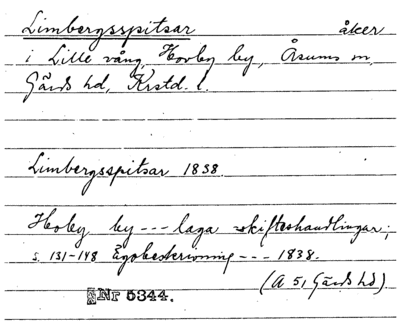 Limbergsspitsar åker
i Lille vång, Hovby by, Åsums sn,
Gärds hd, Krstd. l.
Limbergsspitsar 1838.
Hoby by --- laga skifteshandlingar;
s. 131-148 Egobeskrivning --- 1838.
(A 51 Gärds hd)
Nr 5344.